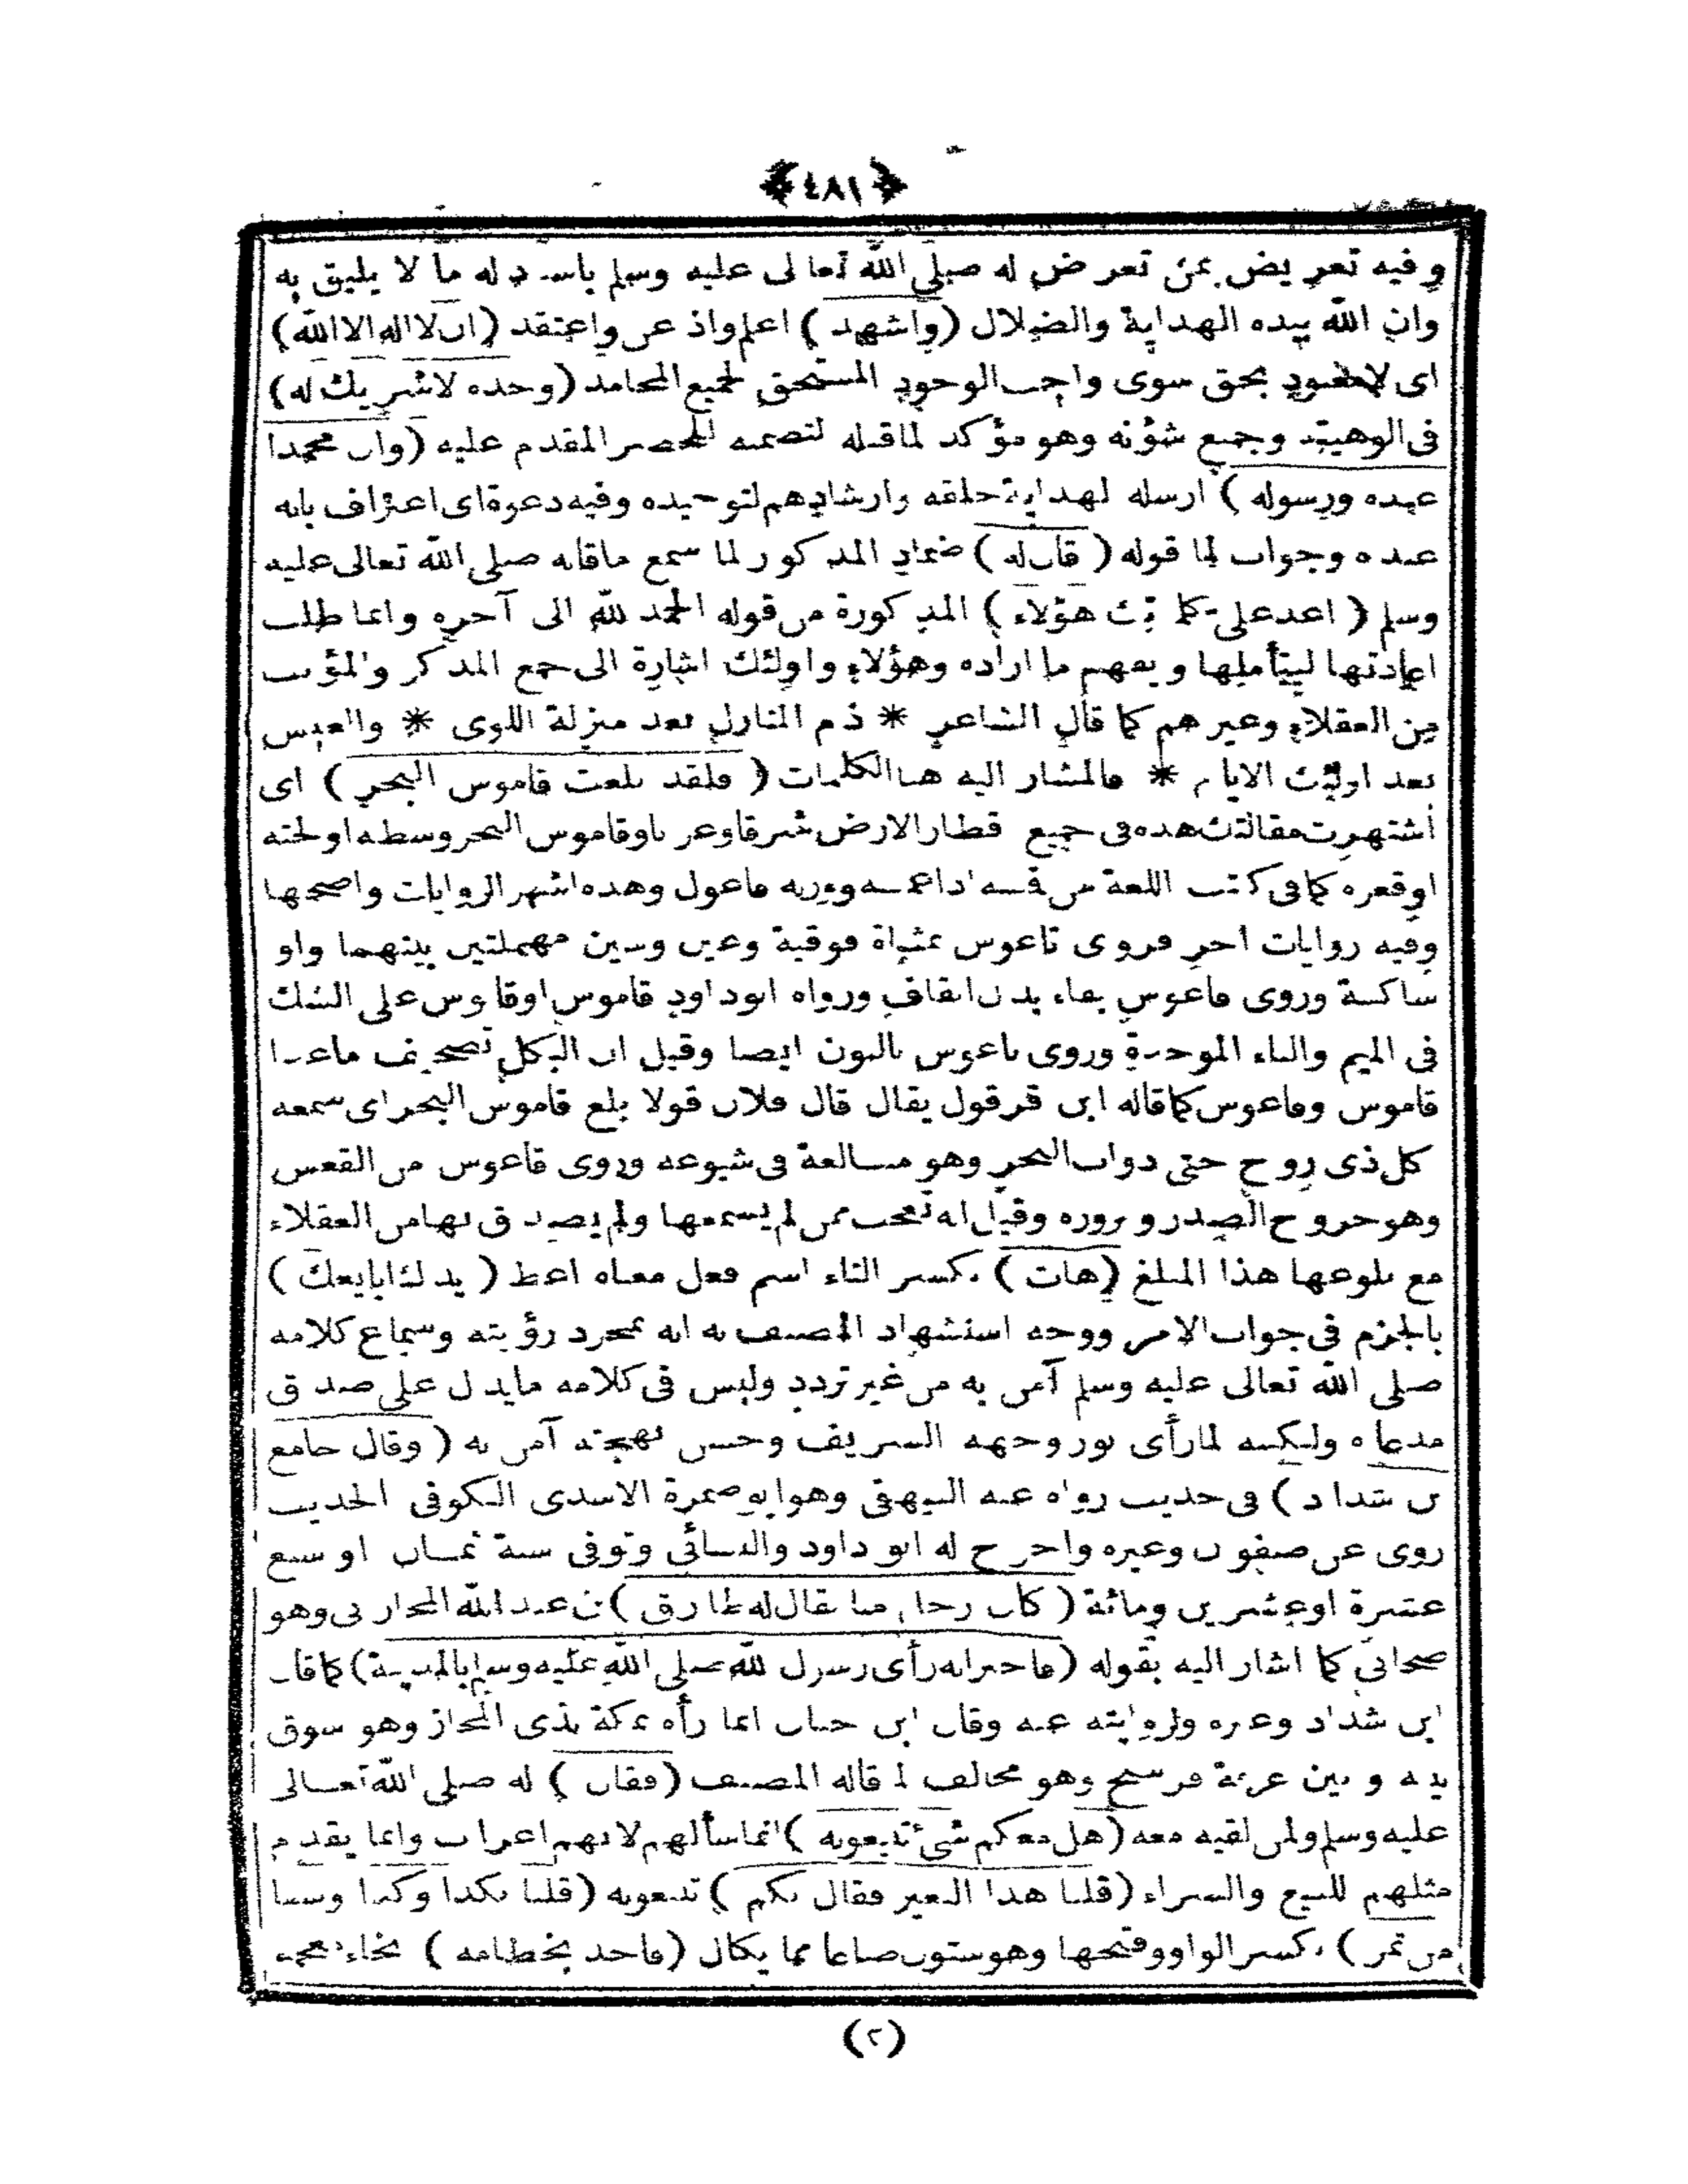 ﴿ ٤٨١ ﴾
وفيه تعريض بمن تعرض له صلى الله تعالى عليه وسلم باسناده له ما لا يليق به
وان الله بيده الهداية والضلال (واشهد) اعلم واذعن واعتقد (ان لا اله الا الله)
اى لا معبود بحق سوى واجب الوجود المستحق لجميع المحامد (وحده لا شريك له)
فى الوهيته وجميع شؤنه وهو مؤكد لما قبله لتضمنه للحصر المقدم عليه (وان محمدا
عبده ورسوله) ارسله لهداية خلقه وارشادهم لتوحيده وفيه دعوة اى اعتراف بانه
عبده وجواب لما قوله (قال له) ضماد المذكور لما سمع ما قاله صلى الله تعالى عليه
وسلم (اعد على كلماتك هؤلاء) المذكورة من قوله الحمد لله الى آخره وانما طلب
اعادتها ليتأملها ويفهم ما اراده وهؤلاء واولئك اشارة الى جمع المذكر والمؤنث
من العقلاء وغيرهم كما قال الشاعر * ذم المنازل بعد منزلة اللوى * والعيش
بعد اولئك الايام * فالمشار اليه هنا الكلمات (فلقد بلغت قاموس البحر) اى
اشتهرت مقالتك هذه فى جميع قطار الارض شرقا وغربا وقاموس البحر وسطه او لجته
او قعره كما فى كتب اللغة من قمسه اذا غمسه ووزنه فاعول وهذه اشهر الروايات واصحها
وفيه روايات اخر فروى تاعوس بمثناة فوقية وعين وسين مهملتين بينهما واو
ساكنة وروى فاعوس بفاء بدل القاف ورواه ابو داود قاموس او قابوس على الشك
فى الميم والباء الموحدة وروى ناعوس بالنون ايضا وقيل ان الكل تصحيف ما عدا
قاموس وفاعوس كما قاله ابن قرقول يقال قال فلان قولا بلغ قاموس البحر اى سمعه
كل ذى روح حتى دواب البحر وهو مبالغة فى شيوعه وروى قاعوس من القعس
وهو خروج الصدر وبروزه وقيل انه تعجب ممن لم يسمعها ولم يصدق بها من العقلاء
مع بلوغها هذا المبلغ (هات) بكسر التاء اسم فعل معناه اعط (يدك ابايعك)
بالجزم فى جواب الامر ووجه استشهاد المصنف به انه بمجرد رؤيته وسماع كلامه
صلى الله تعالى عليه وسلم آمن به من غير تردد وليس فى كلامه ما يدل على صدق
مدعاه ولكنه لما رأى نور وجهه الشريف وحسن بهجته آمن به (وقال جامع
بن شداد) فى حديث رواه عنه البيهقى وهو ابو صخرة الاسدى الكوفى الحديث
روى عن صفوان وغيره واخرج له ابو داود والنسائى وتوفى سنة ثمان او سبع
عشرة او عشرين ومائة (كان رجل منا يقال له طارق) بن عبد الله المحاربى وهو
صحابى كما اشار اليه بقوله (فاخبر انه رأى رسول الله صلى الله عليه وسلم بالمدينة) كما قال
ابن شداد وغيره وروايته عنه وقال ابن حبان انما رأه بمكة بذى المجاز وهو سوق
بينه وبين عرفة فرسخ وهو مخالف لما قاله المصنف (فقال) له صلى الله تعالى
عليه وسلم ولمن لقيه معه (هل معكم شئ تبيعونه) انما سألهم لانهم اعراب وانما يقدم
مثلهم للبيع والشراء (قلنا هذا البعير فقال بكم) تبيعونه (قلنا بكذا وكذا وسقا
من تمر) بكسر الواو وفتحها وهو ستون صاعا مما يكال (فاخذ بخطامه) بخاء معجمة
(٢)